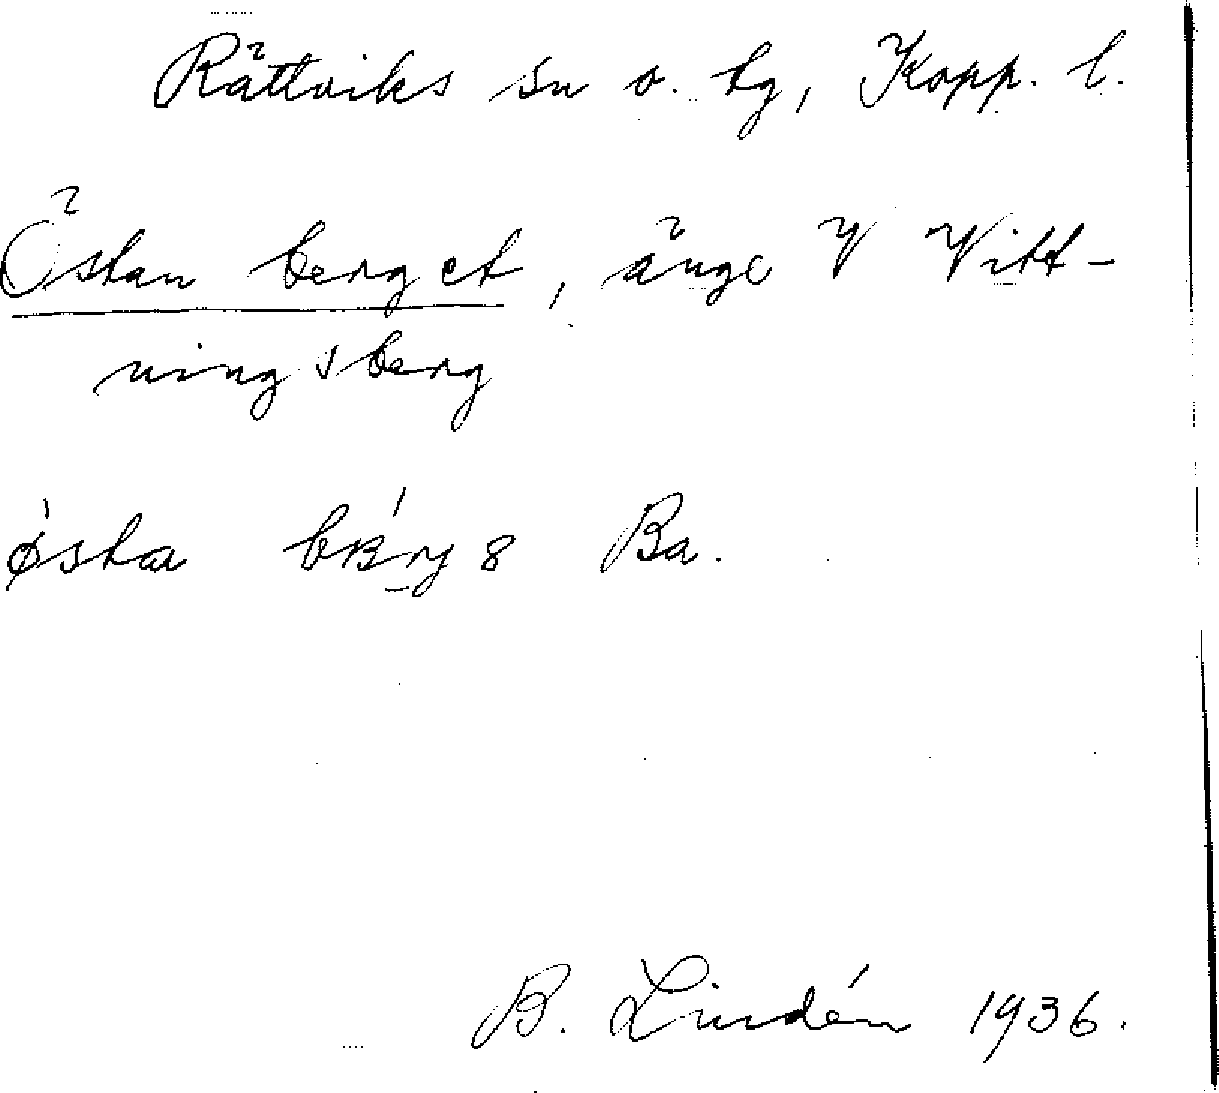 Rättviks sn o. hg, Kopp. l.
Östan berget, änge V Vitt-
ningsberg
Ba.
B. Lindén 1936.